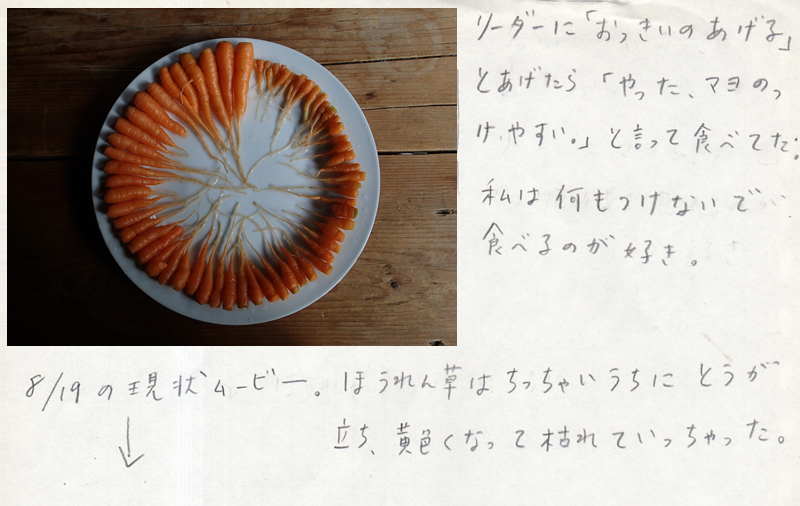 リーダーに「おっきいのあげる」
とあげたら「やった、マヨのっ
け、やすい。」と言って食べてた。
私は何もつけないで
食べるのが好き。
8/19の現状ムービー。ほうれん草はちっちゃいうちにとうが
立ち、黄色くなって枯れていっちゃった。